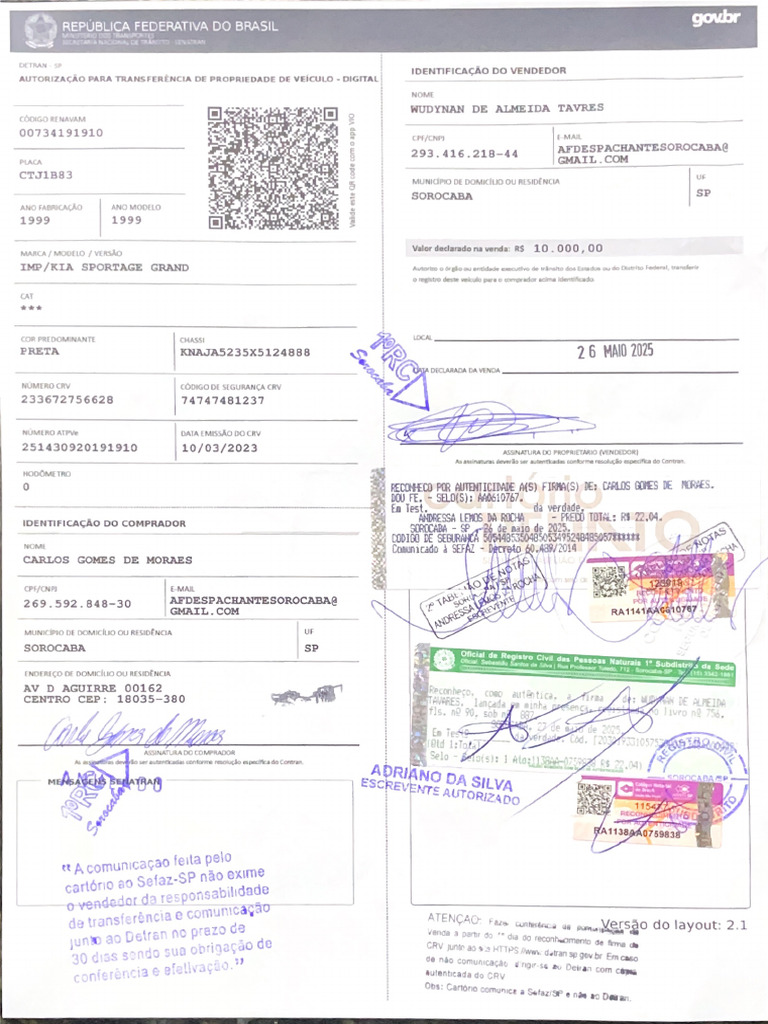 REPÚBLICA FEDERATIVA DO BRASIL
MINISTÉRIO DOS TRANSPORTES
SECRETARIA NACIONAL DE TRÂNSITO - SENATRAN
gov.br
DETRAN - SP
AUTORIZAÇÃO PARA TRANSFERÊNCIA DE PROPRIEDADE DE VEÍCULO - DIGITAL
CÓDIGO RENAVAM
00734191910
PLACA
CTJ1B83
ANO FABRICAÇÃO
1999
ANO MODELO
1999
Valide este QR code com o app VIO
MARCA / MODELO / VERSÃO
IMP/KIA SPORTAGE GRAND
CAT
***
COR PREDOMINANTE
PRETA
CHASSI
KNAJA5235X5124888
NÚMERO CRV
233672756628
CÓDIGO DE SEGURANÇA CRV
74747481237
NÚMERO ATPVe
251430920191910
DATA EMISSÃO DO CRV
10/03/2023
HODÔMETRO
0
IDENTIFICAÇÃO DO COMPRADOR
NOME
CARLOS GOMES DE MORAES
CPF/CNPJ
269.592.848-30
E-MAIL
AFDESPACHANTESOROCABA@
GMAIL.COM
MUNICÍPIO DE DOMICÍLIO OU RESIDÊNCIA
SOROCABA
UF
SP
ENDEREÇO DE DOMICÍLIO OU RESIDÊNCIA
AV D AGUIRRE 00162
CENTRO CEP: 18035-380
Carlos Gomes de Moraes
ASSINATURA DO COMPRADOR
As assinaturas deverão ser autenticadas conforme resolução específica do Contran.
MENSAGENS SENATRAN
1º RC
Sorocaba
"A comunicação feita pelo
cartório ao Sefaz-SP não exime
o vendedor da responsabilidade
de transferência e comunicação
junto ao Detran no prazo de
30 dias sendo sua obrigação de
conferência e efetivação."
IDENTIFICAÇÃO DO VENDEDOR
NOME
WUDYNAN DE ALMEIDA TAVRES
CPF/CNPJ
293.416.218-44
E-MAIL
AFDESPACHANTESOROCABA@
GMAIL.COM
MUNICÍPIO DE DOMICÍLIO OU RESIDÊNCIA
SOROCABA
UF
SP
Valor declarado na venda: R$ 10.000,00
Autorizo o órgão ou entidade executivo de trânsito dos Estados ou do Distrito Federal, transferir
o registro deste veículo para o comprador acima identificado.
LOCAL
26 MAIO 2025
DATA DECLARADA DA VENDA
1º RC
Sorocaba
ASSINATURA DO PROPRIETÁRIO (VENDEDOR)
As assinaturas deverão ser autenticadas conforme resolução específica do Contran.
RECONHEÇO POR AUTENTICIDADE A(S) FIRMA(S) DE: CARLOS GOMES DE MORAES.
DOU FE. - SELO(S): AA0610767.
Em Test. da verdade.
ANDRESSA LEMOS DA ROCHA - PREÇO TOTAL: R$ 22,04.
SOROCABA - SP, 26 de maio de 2025.
Comunicado à SEFAZ - Decreto 60.489/2014
2º TABELIÃO DE NOTAS
SOROCABA/SP
ANDRESSA LEMOS DA ROCHA
ESCREVENTE
RA1141AA0610767
Oficial de Registro Civil das Pessoas Naturais 1º Subdistrito da Sede
Reconheço, como autêntica, a firma de: WUDYNAN DE ALMEIDA
TAVARES, lançada em minha presença, no livro nº 756,
fls. nº 90, sob nº 887
27 de maio de 2025
da verdade. Cód.
R$ 22,04)
REGISTRO CIVIL
SOROCABA-SP
ADRIANO DA SILVA
ESCREVENTE AUTORIZADO
RA1138AA0759838
ATENÇÃO: Fazer conferência da
venda a partir do dia do reconhecimento de firma do
CRV junto ao site HTTPS://www.detran.sp.gov.br Em caso
de não comunicação dirigir-se ao Detran com cópia
autenticada do CRV
Obs: Cartório comunica a Sefaz/SP e não ao Detran.
Versão do layout: 2.1